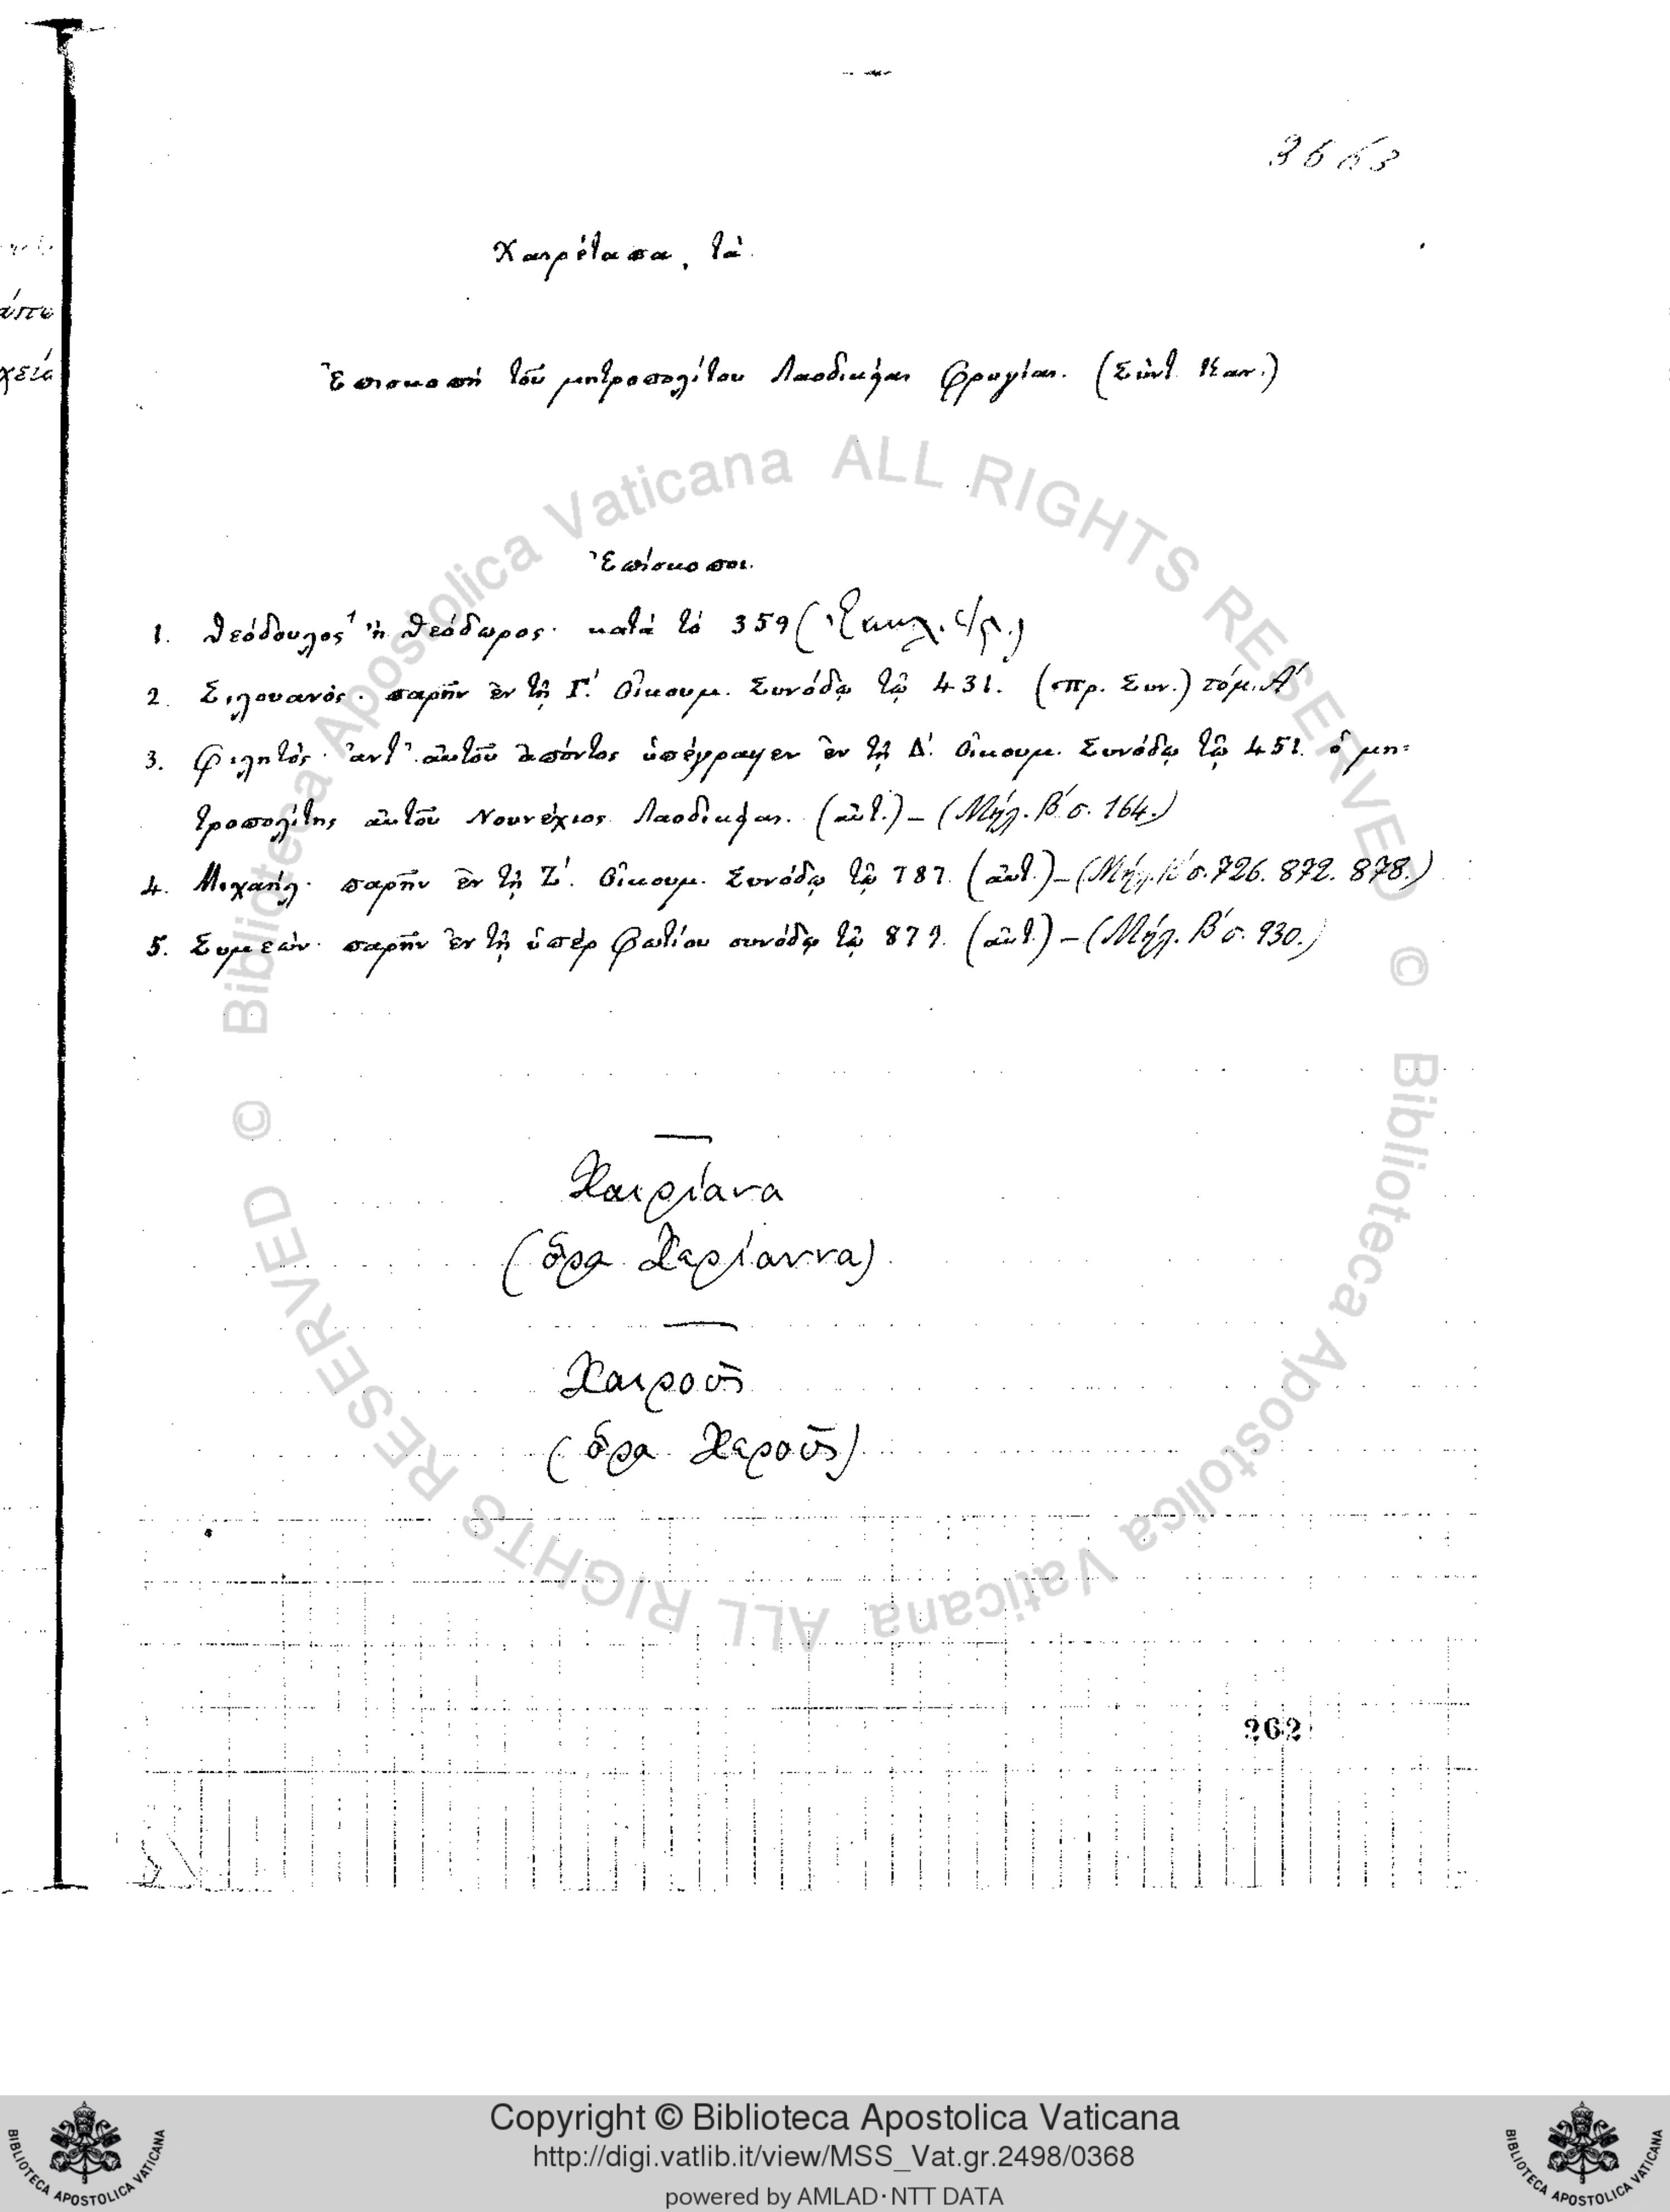 3663
Χαιρέταπα, τὰ.
άπω
χεία
Ἐπισκοπὴ τοῦ μητροπολίτου Λαοδικείας Φρυγίας. (Σύντ. Καν.)
Ἐπίσκοποι.
1. Θεόδουλος ἢ Θεόδωρος· κατὰ τὸ 359
2. Σιλουανός· παρῆν ἐν τῇ Γ΄. Οἰκουμ. Συνόδῳ τῷ 431. (πρ. Συν.) τόμ. Α΄
3. Φιλητός· ἀντ' αὐτοῦ ἀπόντος ὑπέγραψεν ἐν τῇ Δ΄. Οἰκουμ. Συνόδῳ τῷ 451. ὁ μη-
τροπολίτης αὐτοῦ Νουνέχιος Λαοδικείας. (αὐτ.) – (Μήλ. Β΄ σ. 164.)
4. Μιχαήλ· παρῆν ἐν τῇ Ζ΄. Οἰκουμ. Συνόδῳ τῷ 787. (αὐτ.) – (Μήλ. Β΄ σ. 726. 872. 878.)
5. Συμεών· παρῆν ἐν τῇ ὑπὲρ Φωτίου συνόδῳ τῷ 879. (αὐτ.) – (Μήλ. Β΄ σ. 930.)
Χαιρίανα
(ὅρα Χερίαννα)
Χαιροῦς
(ὅρα Χεροῦς)
262
© Biblioteca Apostolica Vaticana ALL RIGHTS RESERVED
© Biblioteca Apostolica Vaticana ALL RIGHTS RESERVED
Copyright © Biblioteca Apostolica Vaticana
http://digi.vatlib.it/view/MSS_Vat.gr.2498/0368
powered by AMLAD·NTT DATA
BIBLIOTECA APOSTOLICA VATICANA
BIBLIOTECA APOSTOLICA VATICANA